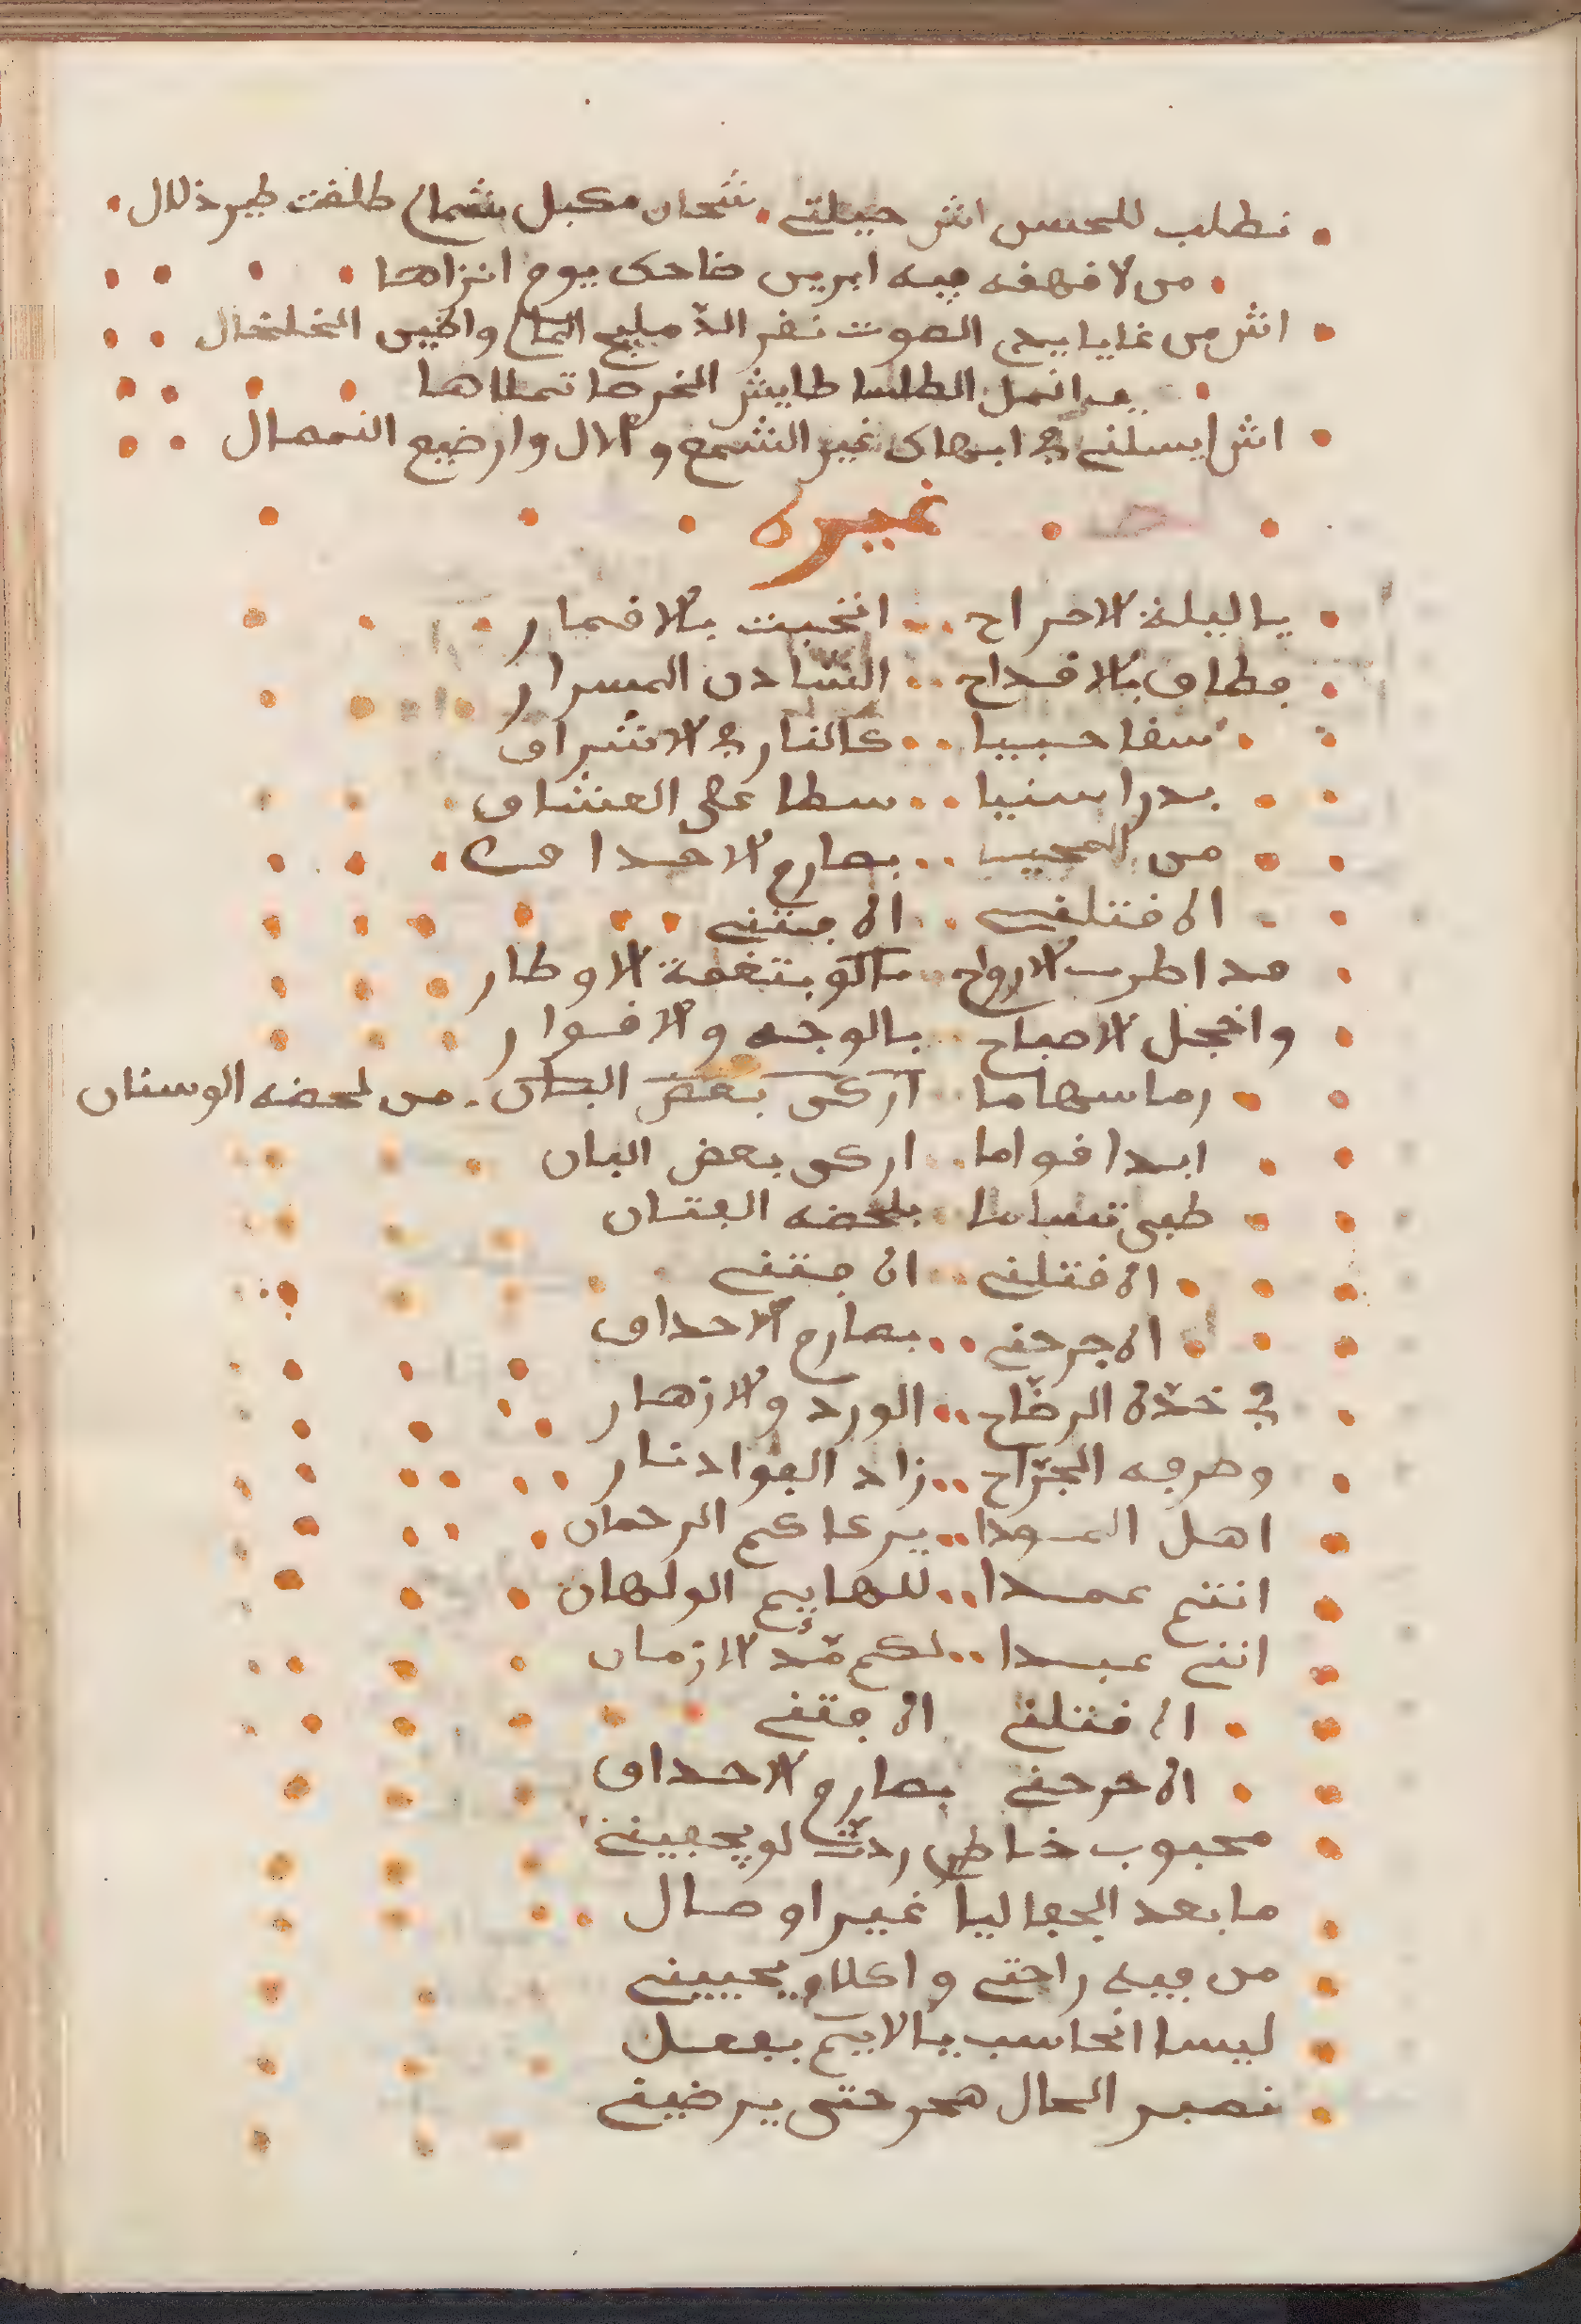 نطلب للحسن اش حيلتي . شحان مكبل بشماع طلقت طير ذلال
من لا قهقه فيه ابريس ضاحك يوم انزاها
اش من غايا يبح الصوت نقر الدمليج الماع واكيس الخلخال
انمل الطلسا طايش الخرصا تملاها
اش ايسلني في ابهاك غير الشمع والال وارضيع النصال
غيره
يا ليلة الافراح .. انخبت بالاقمار
فطاف بالاقداح .. الشادن المسرار
سقا حبيبا .. كالنار في الاشراق
بدرا سنيا .. سطا على العشاق
من المحيب .. بصارم الاحداق
الا قتلني .. الا فتني
قد اطرب الارواح .. بنغمة الاوطار
واخجل الاصباح .. بالوجه والانوار
رما سهاما .. ازكى بعض البان . من لحضه الوسنان
ابدا قواما .. ازكى بعض البان
طبي تساما .. بلحضه الفتان
الا قتلني .. ان فتني
الا جرحني .. بصارم الاحداق
في خدّه الوضّاح .. الورد والازهار
وطرفه الجرّاح .. زاد الفواد نار
اهل المودا .. يرعاكم الرحمان
انتم عمدا .. للهايم الولهان
انني عبدا .. لكم مدّ الازمان
الا قتلني الا فتني
الا جرحني بصارم الاحداق
محبوب خاطر ردت لو يجيني
ما بعد الجفا ليا غير اوصال
من فيه راحتي واكلام يحييني
ليسا انحاسب يا لايم بفعل
نصبر الحال هجر حتى يرضيني